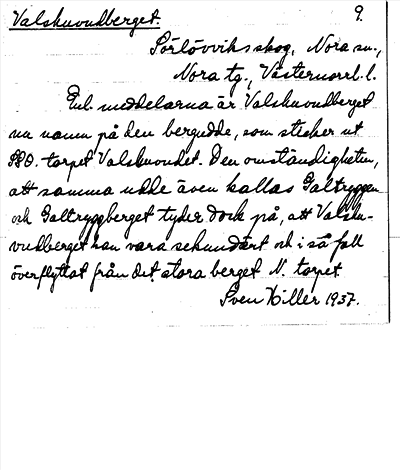 Valskuvudberget. 9.
Sörlövviks skog, Nora sn.,
Nora tg., Västernorrl. l.
Enl. meddelarna är Valskuvudberget
nu namn på den bergudde, som sticker ut
SSO. torpet Valskuvudet. Den omständigheten,
att samma udde även kallas Galtryggen
och Galtryggberget tyder dock på, att Valsku-
vudberget kan vara sekundärt och i så fall
överflyttat från det stora berget N. torpet
Sven Hiller 1937.